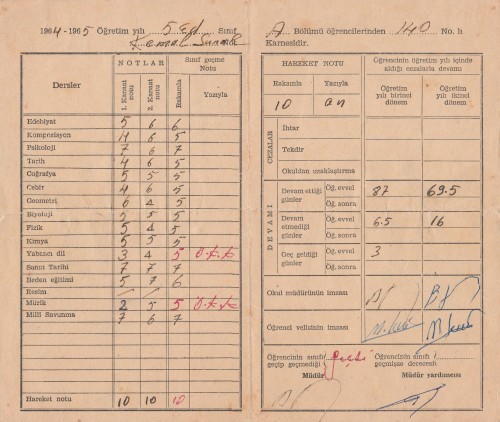 1964-1965 Öğretim yılı 5 Ed Sınıf
A Bölümü öğrencilerinden 140 No. lı
Kemal
Karnesidir.
Dersler
NOTLAR
1. Kanaat notu
2. Kanaat notu
Sınıf geçme Notu
Rakamla
Yazıyla
Edebiyat 5 6 6
Kompozisyon 4 6 5
Psikoloji 7 6 7
Tarih 4 6 5
Coğrafya 5 5 5
Cebir 4 6 5
Geometri 6 4 5
Biyoloji 5 5 5
Fizik 5 4 5
Kimya 5 5 5
Yabancı dil 3 4 5 O.K.K
Sanat Tarihi 7 7 7
Beden eğitimi 5 7 6
Resim
Müzik 2 5 5 O.K.K
Milli Savunma 7 6 7
Hareket notu 10 10 10
HAREKET NOTU
Rakamla Yazıyla
10 on
Öğrencinin öğretim yılı içinde
aldığı cezalarla devamı
Öğretim yılı birinci dönem
Öğretim yılı ikinci dönem
CEZALAR
İhtar
Tekdir
Okuldan uzaklaştırma
DEVAMI
Devam ettiği günler
Öğ. evvel 87 69.5
Öğ. sonra
Devam etmediği günler
Öğ. evvel 6.5 16
Öğ. sonra
Geç geldiği günler
Öğ. evvel 3
Öğ. sonra
Okul müdürünün imzası
Öğrenci velisinin imzası
Öğrencinin sınıfı geçip geçmediği
Geçti
Öğrencinin sınıfı geçmişse derecesi
Müdür
Müdür yardımcısı